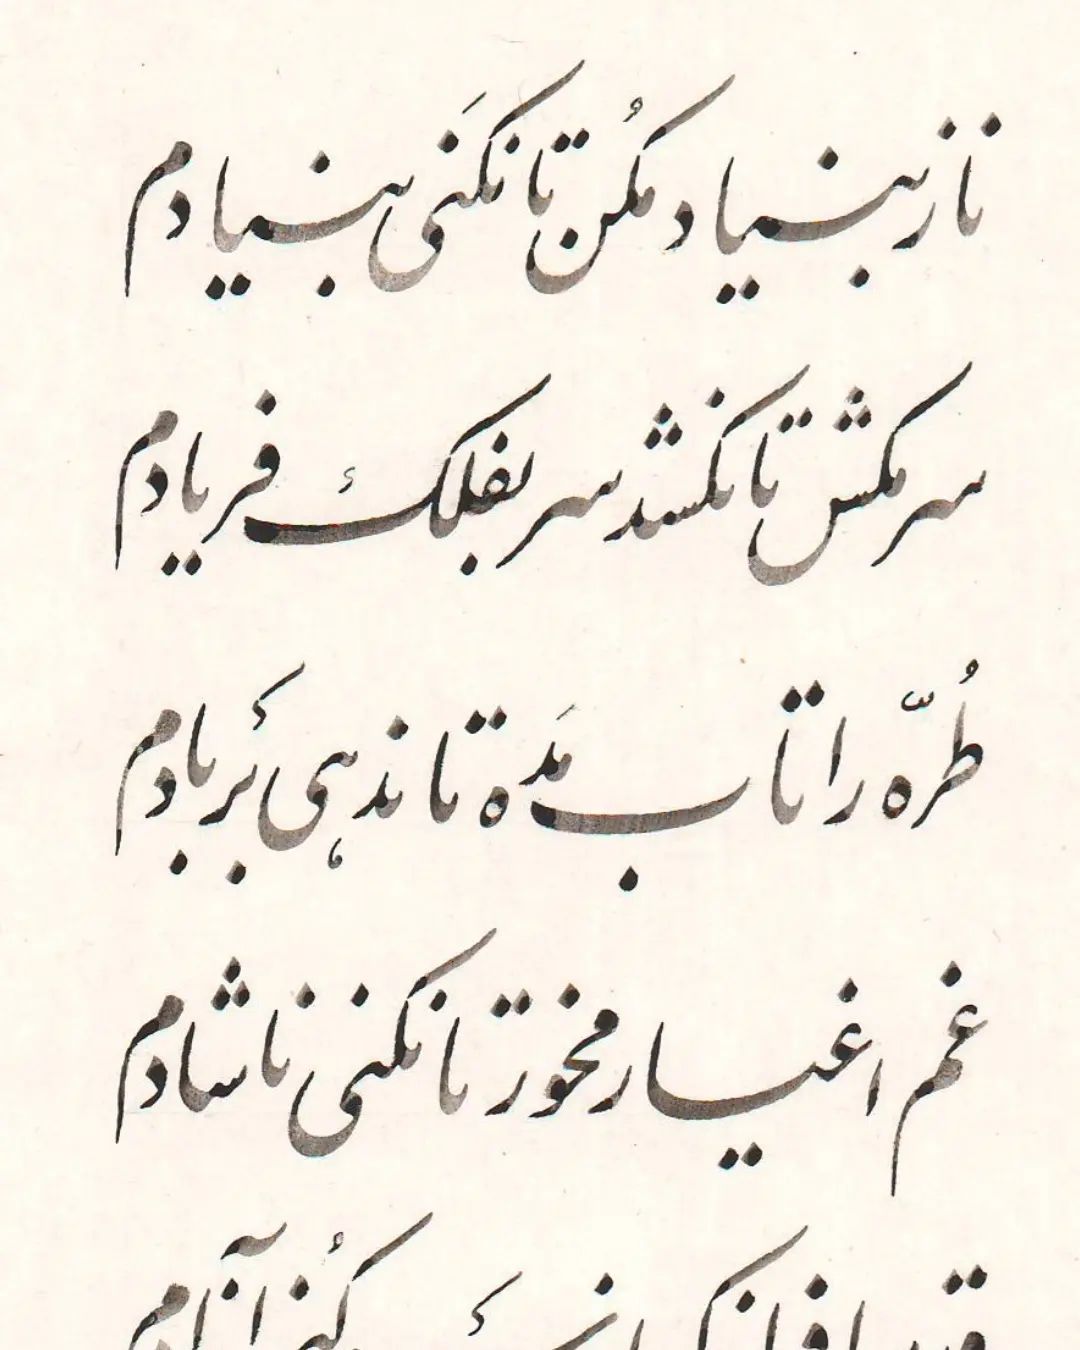 ناز بنیاد مکُن تا نکَنی بنیادم
سر مکش تا نکشد سر بفلک فریادم
طُرّه را تاب مَده تا ندهی بَر بادم
غم اغیار مخور تا نکنی ناشادم